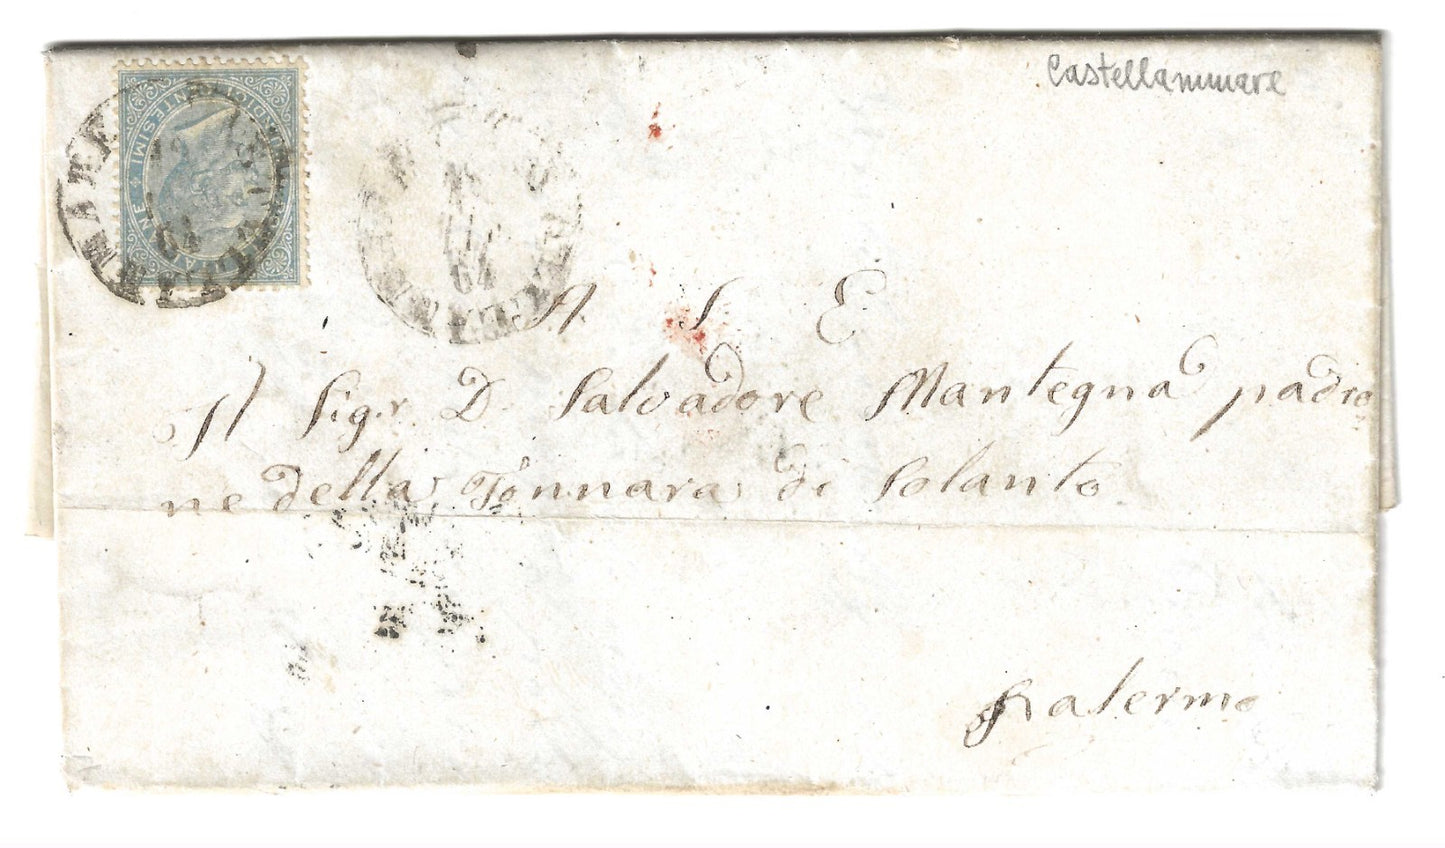 Castellammare
A S E
Il Sig.r D. Salvadore Mantegna padro
ne della Tonnara di Solanto
Palermo
64
64